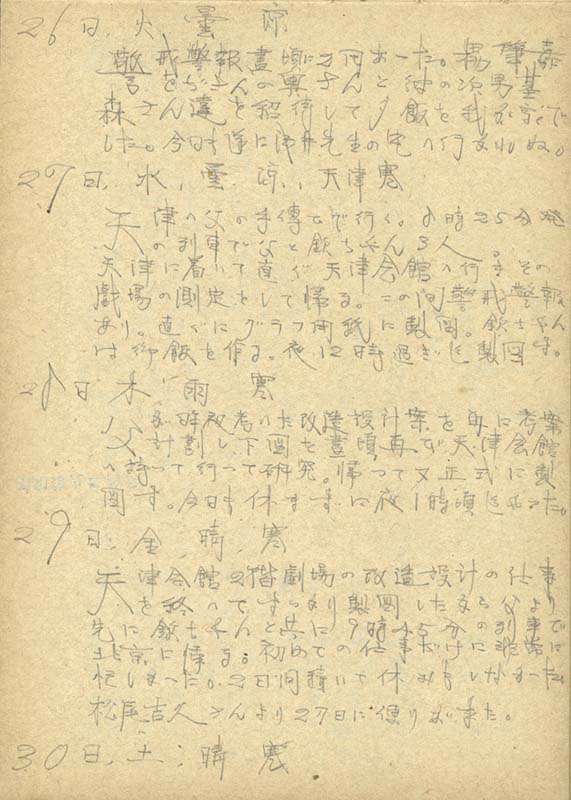 26日, 火, 曇 涼
警戒警報晝頃に2回あった。楊肇嘉
をぢさんの奥さんと彼の次男基
森さん達を招待して夕飯を我が家で
した。今日も遂に 井先生の宅へ行かれぬ。
27日, 水, 曇 涼, 天津寒
天津へ父の手傳ひで行く。8時25分発
の列車で父と欽ちゃん3人。
天津に着いて直ぐ天津会館へ行きその
劇場の測定をして帰る。この間警戒警報
あり。直ぐにグラフ用紙に製図。欽士さん
は御飯を作る。夜12時過ぎ迄製図す。
28日 木 雨 寒
父が昨夜考へた改造設計案を再に考案
計劃し、下図を晝頃再び天津会館
へ詩って行って研究。帰って又正式に製
図す。今日も休まずに夜1時頃迄やった。
29日, 金, 晴, 寒
天津会館2階劇場の改造設計の仕事
を終へてすっかり製図したから父より
先に欽士さんと共に9時45分の列車で
北京に帰る。初めての仕事だけに
忙しかった。2日間續いて休みもしなかった。
松尾吉久さんより27日に便りがきた。
30日, 土, 晴 寒